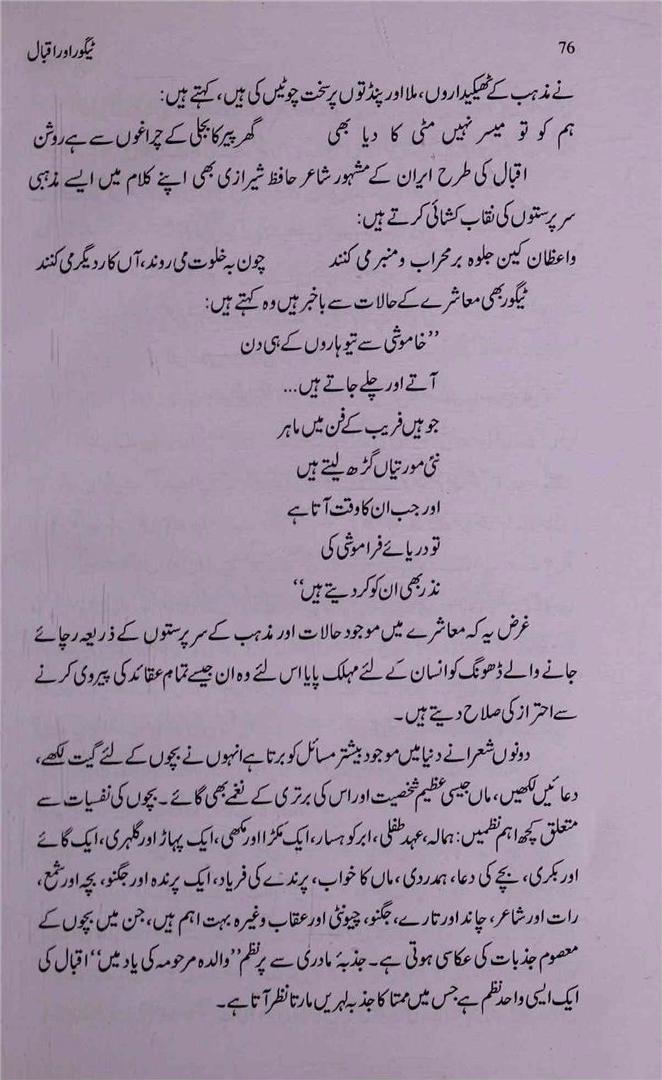 76
ٹیگور اور اقبال
نے مذہب کے ٹھیکیداروں، ملا اور پنڈتوں پر سخت چوٹیں کی ہیں، کہتے ہیں:
ہم کو تو میسر نہیں مٹی کا دیا بھی گھر پیر کا بجلی کے چراغوں سے ہے روشن
اقبال کی طرح ایران کے مشہور شاعر حافظ شیرازی بھی اپنے کلام میں ایسے مذہبی
سرپرستوں کی نقاب کشائی کرتے ہیں:
واعظان کین جلوہ بر محراب و منبر می کنند چون بہ خلوت می روند، آں کار دیگر می کنند
ٹیگور بھی معاشرے کے حالات سے باخبر ہیں وہ کہتے ہیں:
”خاموشی سے تیوہاروں کے ہی دن
آتے اور چلے جاتے ہیں...
جو ہیں فریب کے فن میں ماہر
نئی مورتیاں گڑھ لیتے ہیں
اور جب ان کا وقت آتا ہے
تو دریائے فراموشی کی
نذر بھی ان کو کر دیتے ہیں“
غرض یہ کہ معاشرے میں موجود حالات اور مذہب کے سرپرستوں کے ذریعہ رچائے
جانے والے ڈھونگ کو انسان کے لئے مہلک پایا اس لئے وہ ان جیسے تمام عقائد کی پیروی کرنے
سے احتراز کی صلاح دیتے ہیں۔
دونوں شعرا نے دنیا میں موجود بیشتر مسائل کو برتا ہے انہوں نے بچوں کے لئے گیت لکھے،
دعائیں لکھیں، ماں جیسی عظیم شخصیت اور اس کی برتری کے نغمے بھی گائے۔ بچوں کی نفسیات سے
متعلق کچھ اہم نظمیں: ہمالہ، عہد طفلی، ابر کوہسار، ایک مکڑا اور مکھی، ایک پہاڑ اور گلہری، ایک گائے
اور بکری، بچے کی دعا، ہمدردی، ماں کا خواب، پرندے کی فریاد، ایک پرندہ اور جگنو، بچہ اور شمع،
رات اور شاعر، چاند اور تارے، جگنو، چیونٹی اور عقاب وغیرہ بہت اہم ہیں، جن میں بچوں کے
معصوم جذبات کی عکاسی ہوتی ہے۔ جذبۂ مادری سے پر نظم ”والدہ مرحومہ کی یاد میں“ اقبال کی
ایک ایسی واحد نظم ہے جس میں ممتا کا جذبہ لہریں مارتا نظر آتا ہے۔